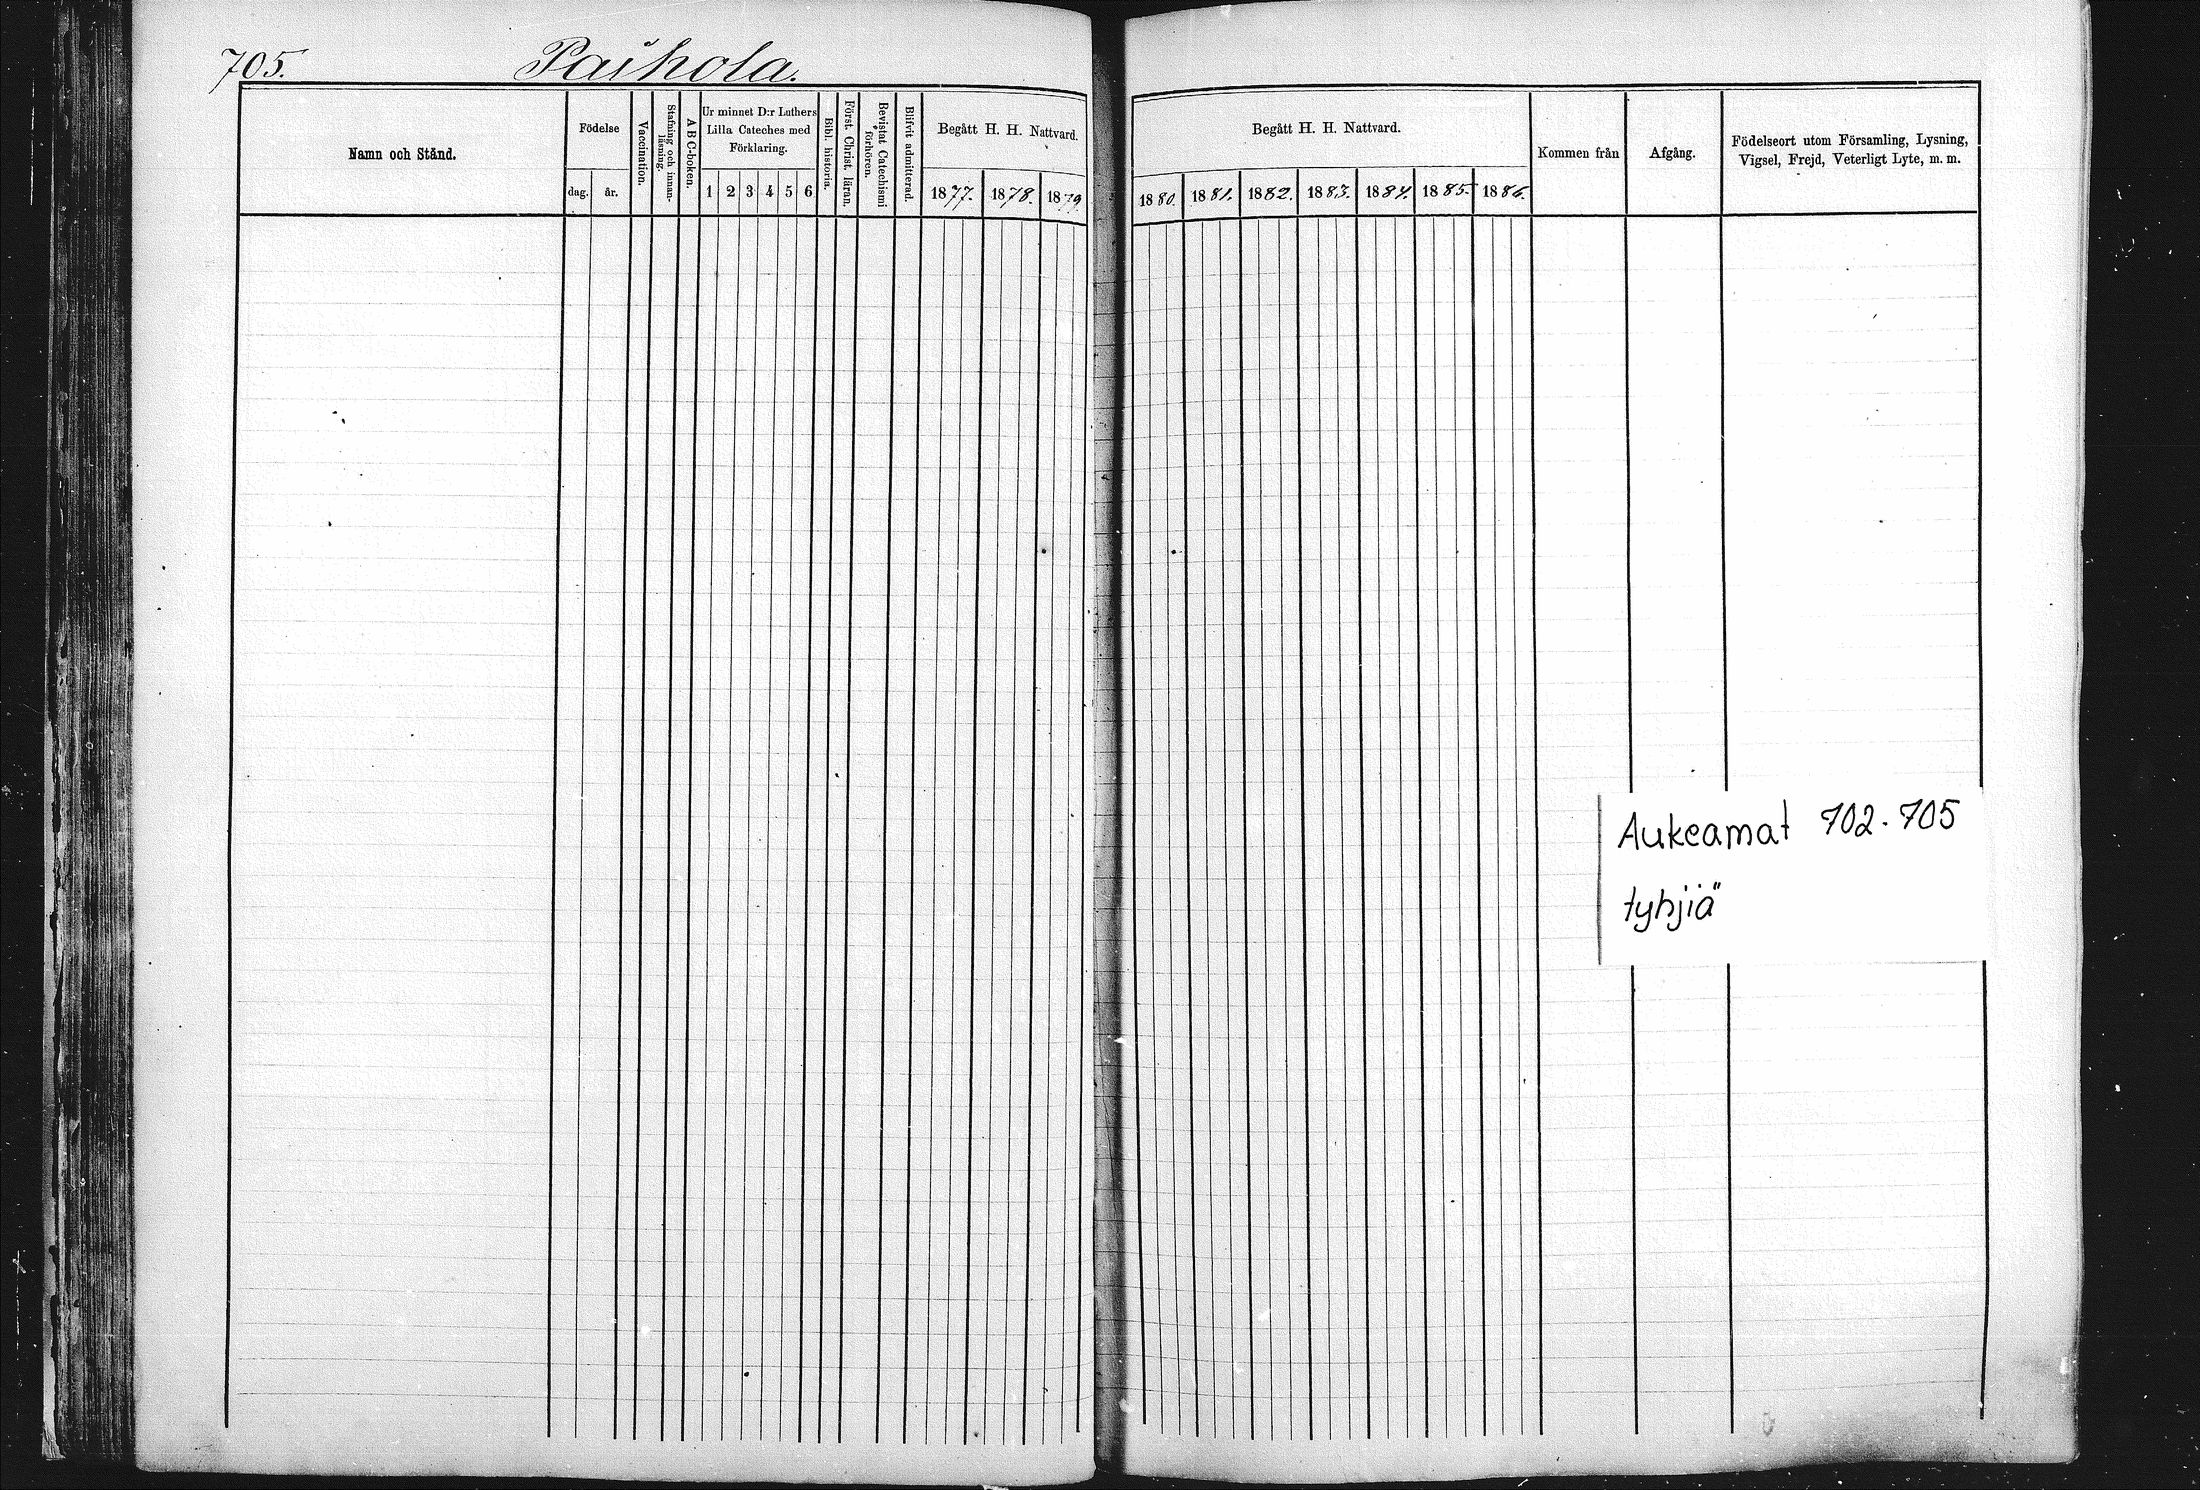 705.
Paihola.
Namn och Stånd.
Födelse
dag.
år.
Vaccination.
Stafning och innan-
läsning.
A B C-boken.
Ur minnet D:r Luthers
Lilla Cateches med
Förklaring.
1 2 3 4 5 6
Bibl. historia.
Först. Christ. läran.
Bevistat Catechismi
förhören.
Blifvit admitterad.
Begått H. H. Nattvard.
1877. 1878. 1879
Begått H. H. Nattvard.
1880. 1881. 1882. 1883. 1884. 1885. 1886.
Kommen från
Afgång.
Födelseort utom Församling, Lysning,
Vigsel, Frejd, Veterligt Lyte, m. m.
Aukeamat 702-705
tyhjiä